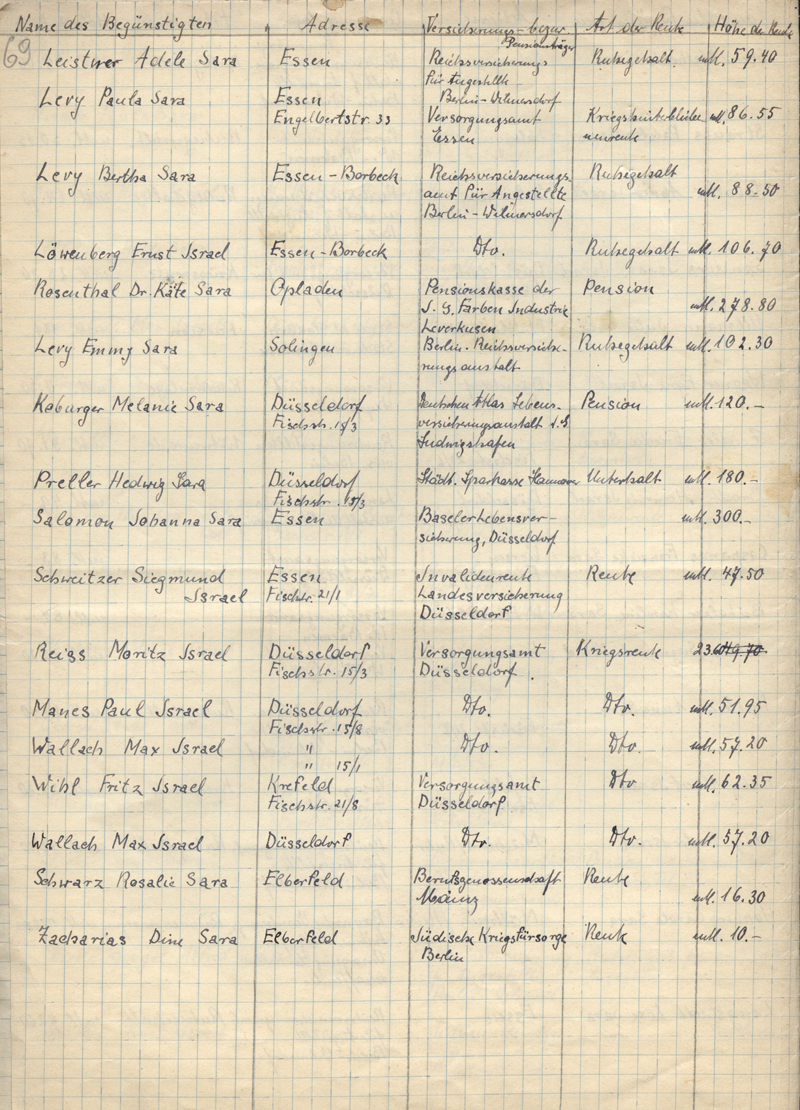 Name des Begünstigten Adresse Versicherungs- bezw. Pensionsträger Art der Rente Höhe der Rente
69
Leistner Adele Sara Essen Reichsversicherungs Ruhegehalt mtl. 59.40
für Angestellte
Levy Paula Sara Essen Berlin-Wilmersdorf
Engelbertstr. 33 Versorgungsamt Kriegshinterbliebe mtl. 86.55
Essen nenrente
Levy Bertha Sara Essen-Borbeck Reichsversicherungs Ruhegehalt
amt für Angestellte mtl. 88.50
Berlin-Wilmersdorf
Löwenberg Ernst Israel Essen-Borbeck Dto. Ruhegehalt mtl. 106.70
Rosenthal Dr. Käte Sara Opladen Pensionskasse der Pension
I. G. Farben Industrie mtl. 278.80
Leverkusen
Levy Emmy Sara Solingen Berlin. Reichsversiche- Ruhegehalt mtl. 102.30
rungsanstalt
Koburger Melanie Sara Düsseldorf Deutschen Atlas Lebens- Pension mtl. 120.-
Fischstr. 15/3 versicherungsanstalt
Ludwigshafen
Preller Hedwig Sara Düsseldorf Städt. Sparkasse Hannover Unterhalt mtl. 180.-
Fischstr. 15/3
Salomon Johanna Sara Essen Baseler Lebensver- mtl. 300.-
sicherung, Düsseldorf
Schweitzer Siegmund Essen Invalidenrente Rente mtl. 47.50
Israel Fischstr. 21/1 Landesversicherung
Düsseldorf
Reiss Moritz Israel Düsseldorf Versorgungsamt Kriegsrente 23.60
Fischstr. 15/3 Düsseldorf.
Manes Paul Israel Düsseldorf Dto. Dto. mtl. 51.95
Fischstr. 15/8
Wallach Max Israel " Dto. Dto. mtl. 57.20
" 15/1
Wihl Fritz Israel Krefeld Versorgungsamt Dto mtl. 62.35
Fischstr. 21/8 Düsseldorf
Wallach Max Israel Düsseldorf Dto. Dto. mtl. 57.20
Schwarz Rosalie Sara Elberfeld Berufsgenossenschaft Rente
Mainz mtl. 16.30
Zacharias Dine Sara Elberfeld Jüdische Kriegsfürsorge Rente mtl. 10.-
Berlin